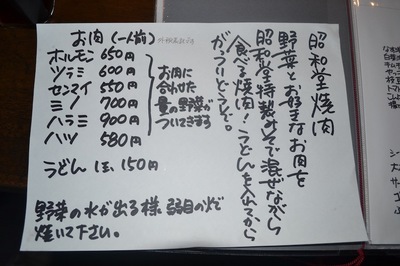 昭和堂焼肉
野菜とお好きなお肉を
昭和堂特製みそで混ぜながら
食べる焼肉！うどんを入れてから
がっつりとうどで。
お肉(一人前)
ホルモン 650円
ツラミ 600円
センマイ 550円
ミノ 700円
ハラミ 900円
ハツ 580円
お肉に
合わせた
量の野菜が
ついてきます
うどん 1玉 150円
野菜の水が出る様、弱目の火で
焼いて下さい。